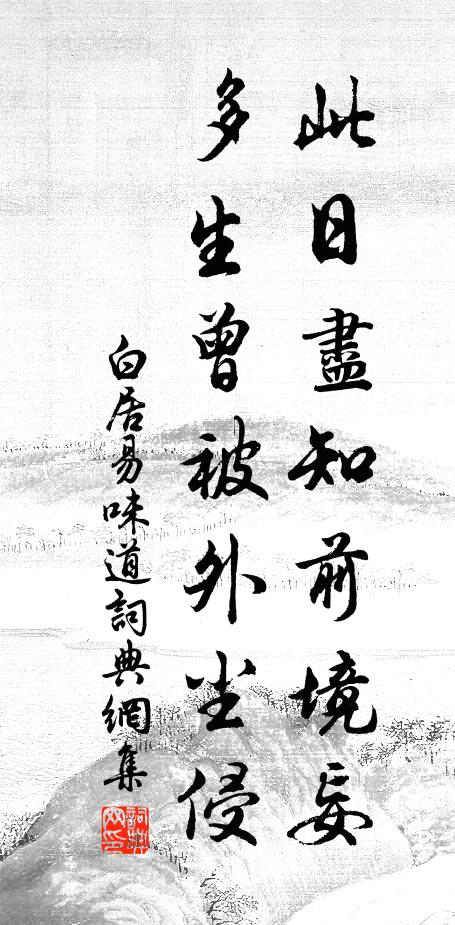 此日盡知前境妄
多生曾被外尘侵
白居易味道詞典網集
詞典网印